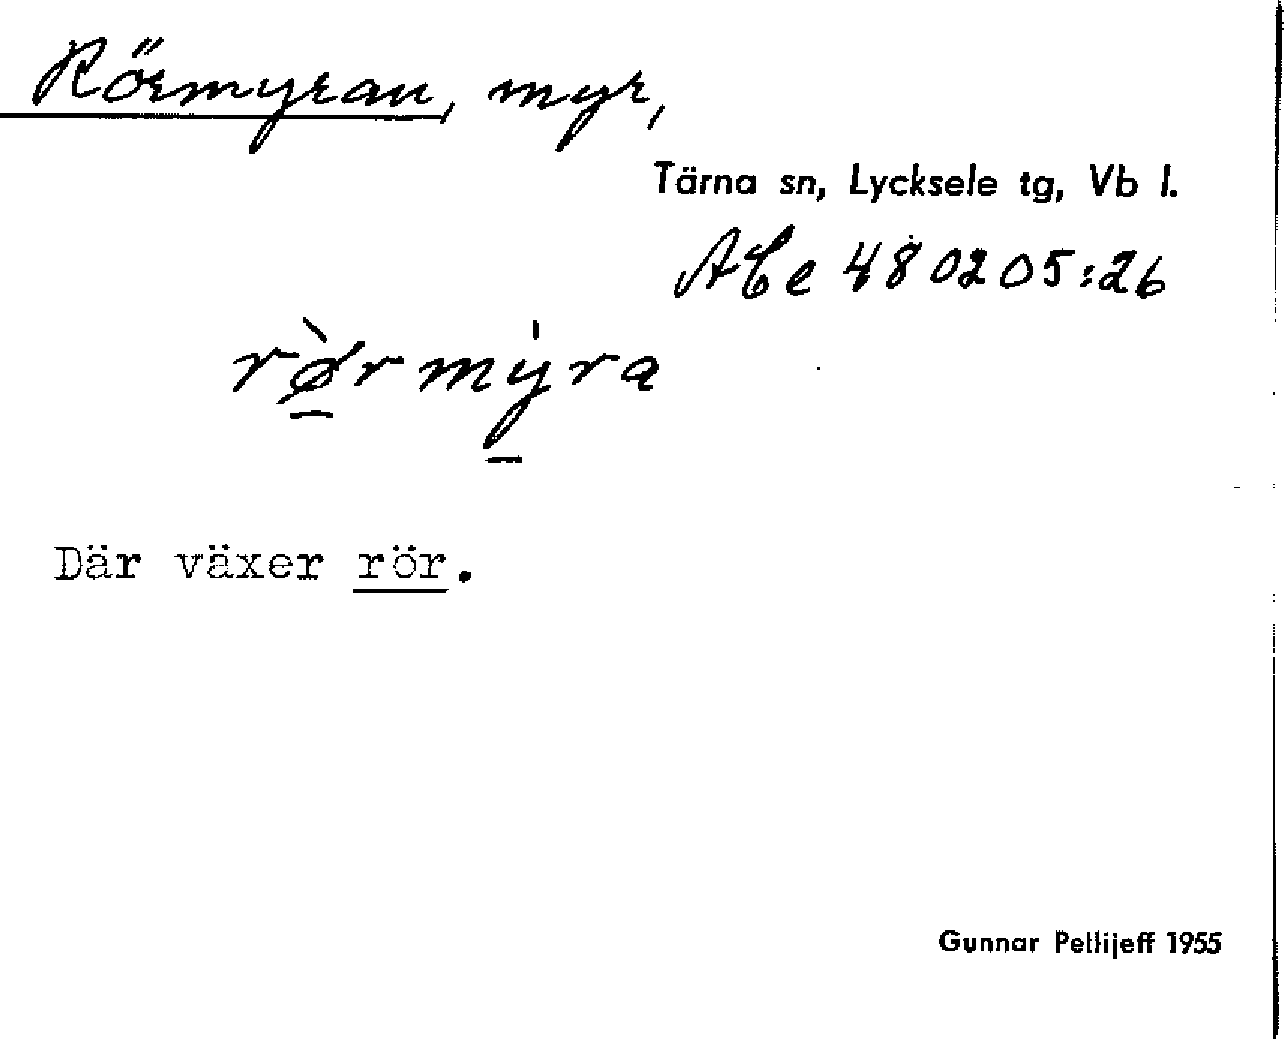 Rörmyran, myr,
Tärna sn, Lycksele tg, Vb l.
Abe 480205:26
rø̠̀rmy̠̍ra
Där växer rör.
Gunnar Pellijeff 1955